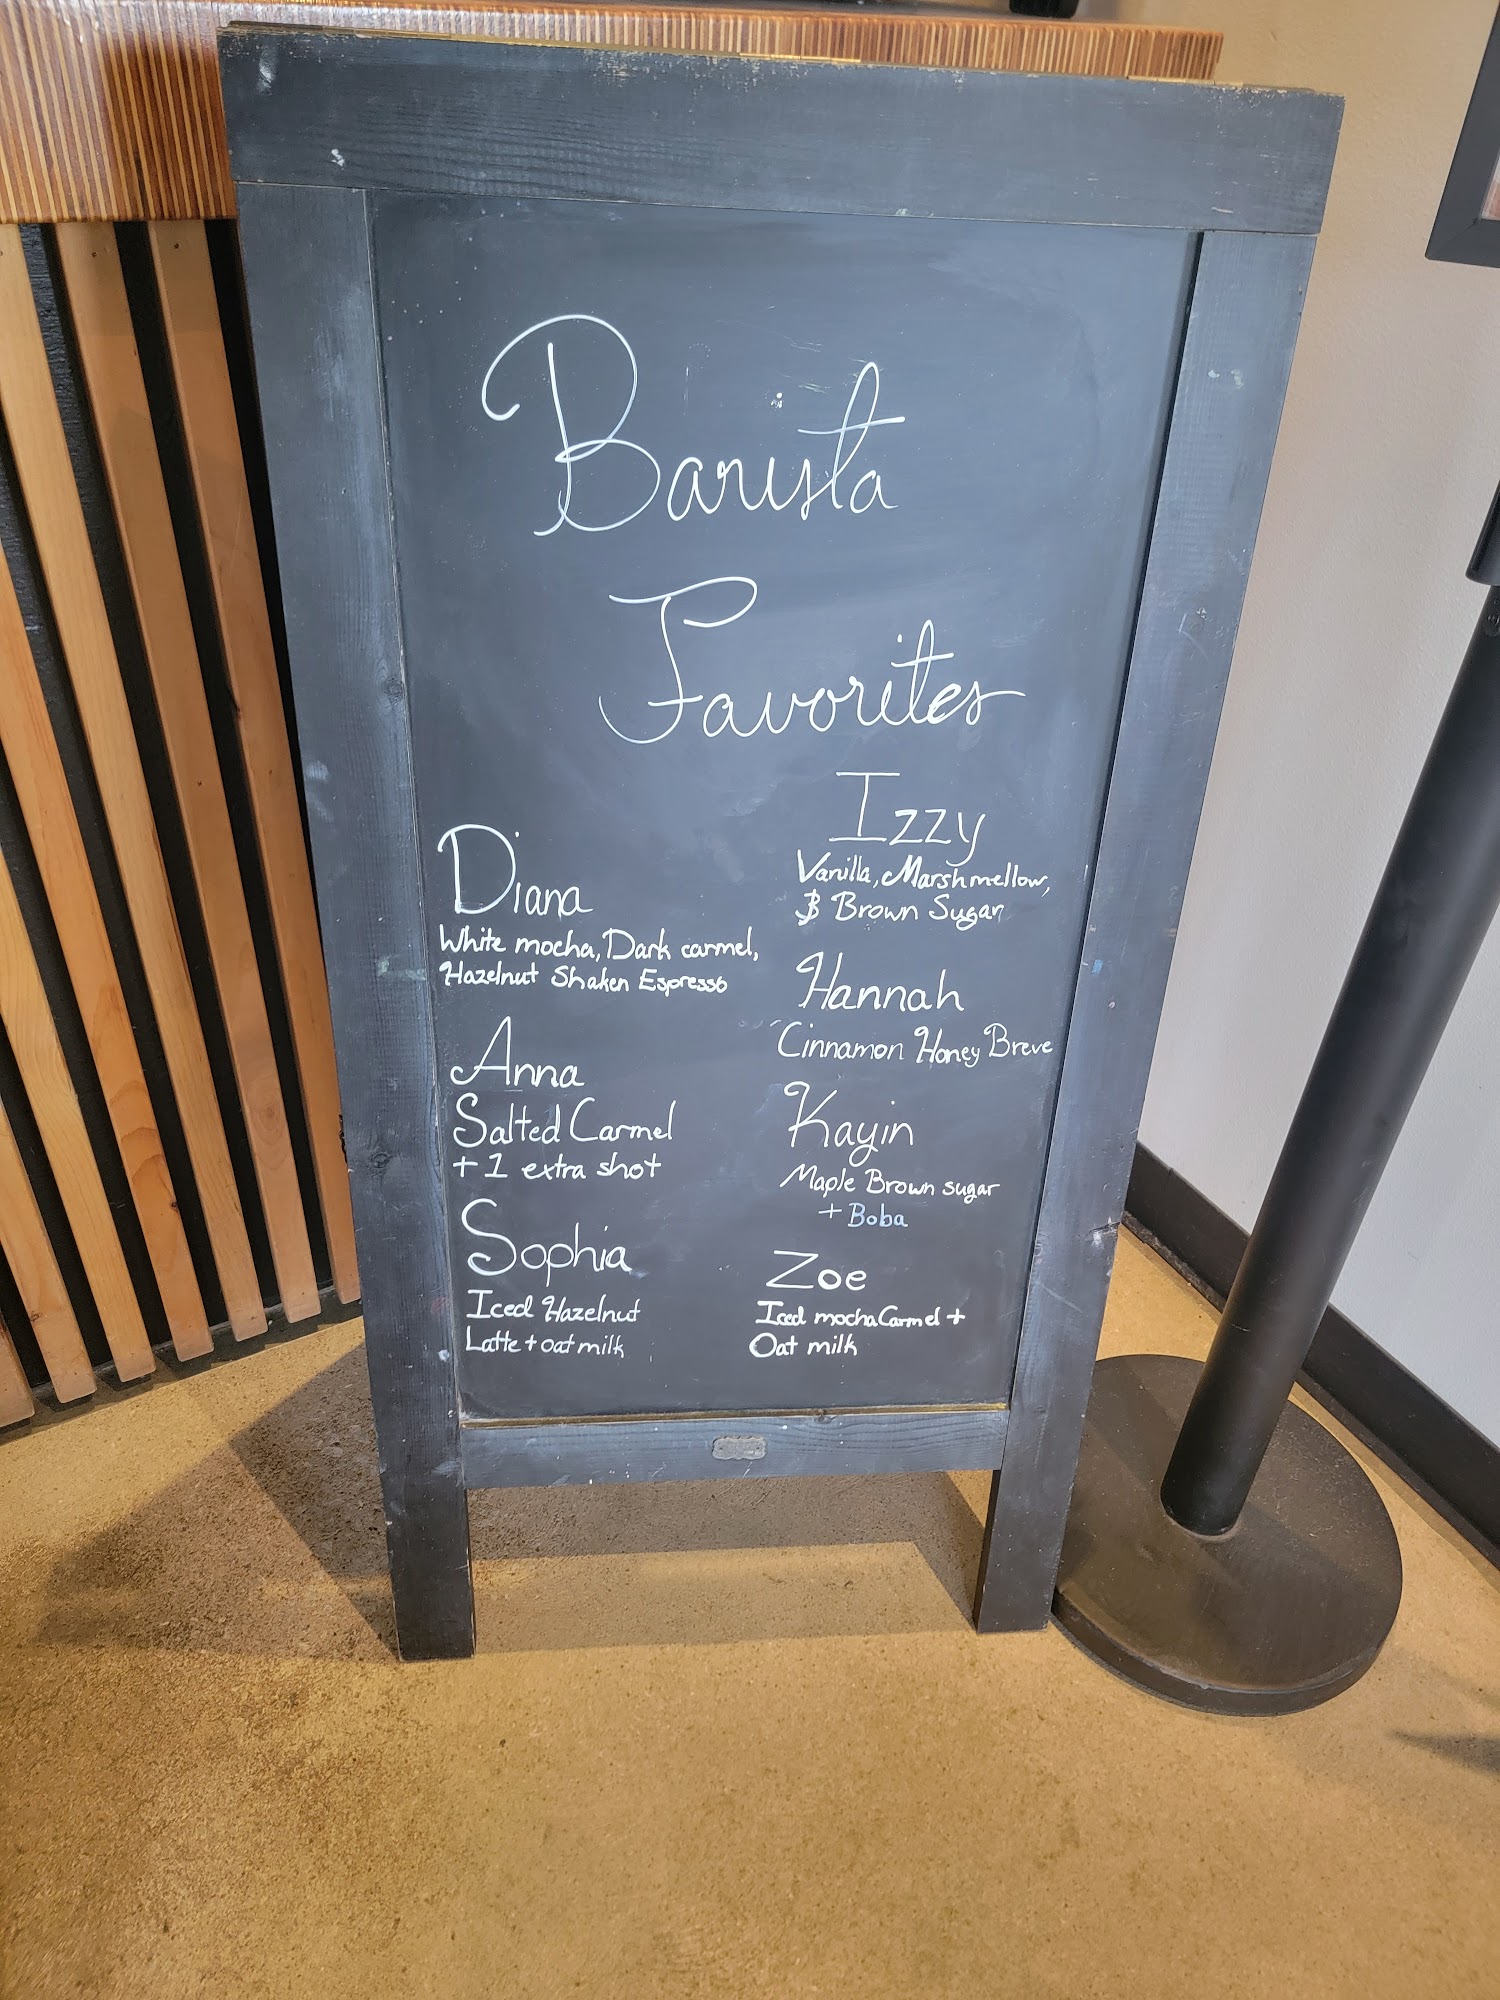 Barista
Favorites
Diana
White mocha, Dark carmel,
Hazelnut Shaken Espresso
Anna
Salted Carmel
+ 1 extra shot
Sophia
Iced Hazelnut
Latte + oat milk
Izzy
Vanilla, Marshmellow,
& Brown Sugar
Hannah
Cinnamon Honey Breve
Kayin
Maple Brown sugar
+ Boba
Zoe
Iced mocha Carmel +
Oat milk